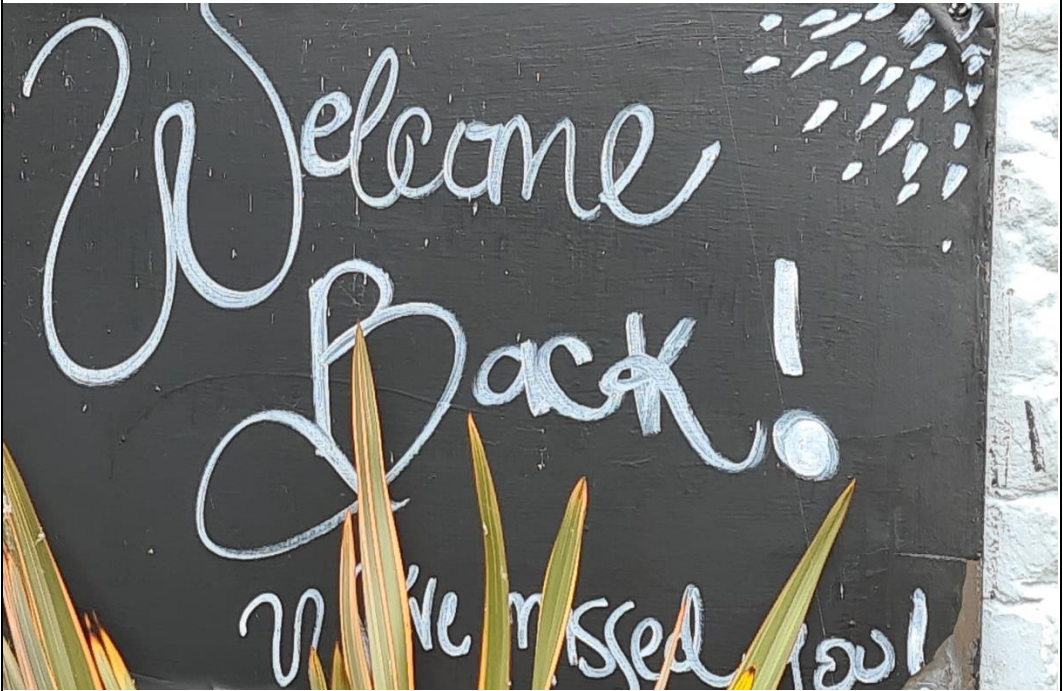 Welcome
Back!
We've missed you!